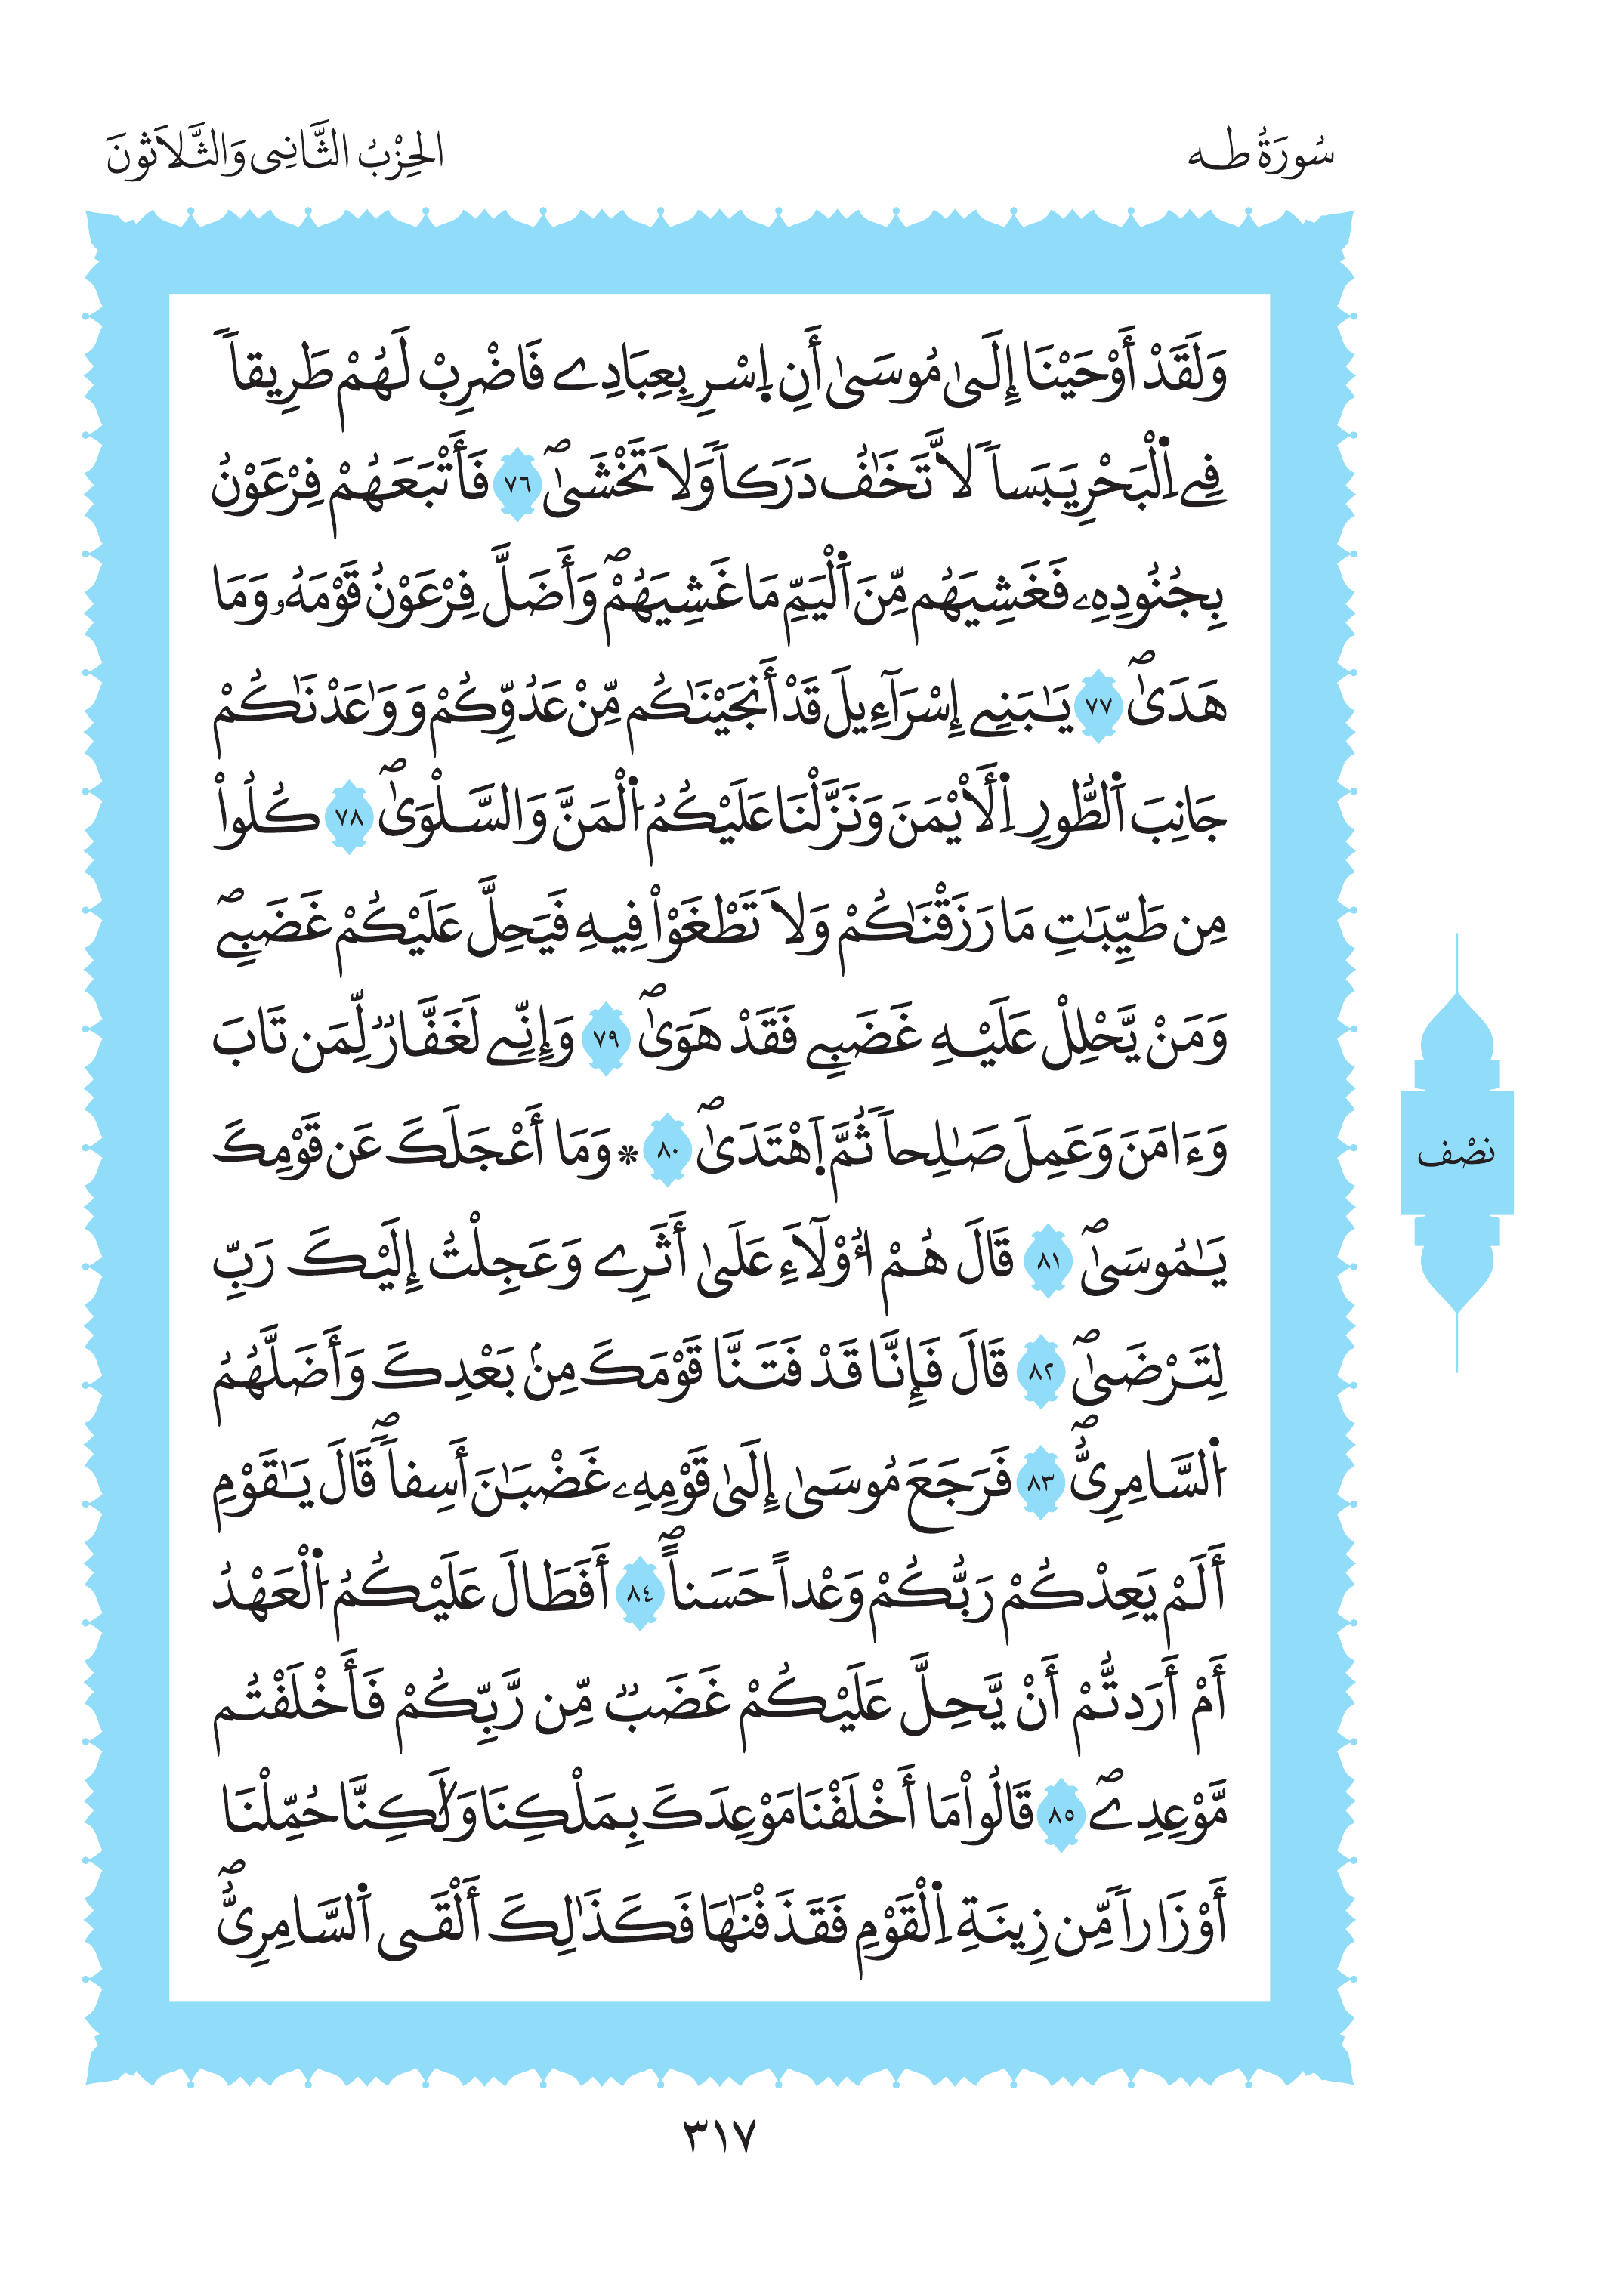 سُورَةُ طه
الحِزْبُ الثَّانِى وَالثَّلاَثُونَ
وَلَقَدْ أَوْحَيْنَا إِلَىٰ مُوسَىٰ أَنِ اِ۪سْرِ بِعِبَادِے فَاضْرِبْ لَهُمْ طَرِيقاٗ
فِے اِ۬لْبَحْرِ يَبَساٗ لاَّ تَخَٰفُ دَرَكاٗ وَلاَ تَخْشَىٰۖ ٧٦ فَأَتْبَعَهُمْ فِرْعَوْنُ
بِجُنُودِهِۦ فَغَشِيَهُم مِّنَ اَ۬لْيَمِّ مَا غَشِيَهُمْۖ وَأَضَلَّ فِرْعَوْنُ قَوْمَهُۥ وَمَا
هَدَىٰۖ ٧٧ يَٰبَنِے إِسْرَآءِيلَ قَدْ أَنجَيْنَٰكُم مِّنْ عَدُوِّكُمْ وَوَٰعَدْنَٰكُمْ
جَانِبَ اَ۬لطُّورِ اِ۬لَأيْمَنَ وَنَزَّلْنَا عَلَيْكُمُ اُ۬لْمَنَّ وَالسَّلْوَىٰۖ ٧٨ كُلُواْ
مِن طَيِّبَٰتِ مَا رَزَقْنَٰكُمْ وَلاَ تَطْغَوْاْ فِيهِ فَيَحِلَّ عَلَيْكُمْ غَضَبِےۖ
وَمَنْ يَّحْلِلْ عَلَيْهِ غَضَبِے فَقَدْ هَوَىٰۖ ٧٩ وَإِنِّے لَغَفَّارٞ لِّمَن تَابَ
وَءَامَنَ وَعَمِلَ صَٰلِحاٗ ثُمَّ اَ۪هْتَدَىٰۖ ٨٠ * وَمَا أَعْجَلَكَ عَن قَوْمِكَ
يَٰمُوسَىٰۖ ٨١ قَالَ هُمْ أُوْلَآءِ عَلَىٰ أَثَرِے وَعَجِلْتُ إِلَيْكَ رَبِّ
لِتَرْضَىٰۖ ٨٢ قَالَ فَإِنَّا قَدْ فَتَنَّا قَوْمَكَ مِنۢ بَعْدِكَ وَأَضَلَّهُمُ
اُ۬لسَّامِرِىُّۖ ٨٣ فَرَجَعَ مُوسَىٰ إِلَىٰ قَوْمِهِۦ غَضْبَٰنَ أَسِفاٗۖ قَالَ يَٰقَوْمِ
أَلَمْ يَعِدْكُمْ رَبُّكُمْ وَعْداً حَسَناًۖ ٨٤ أَفَطَالَ عَلَيْكُمُ اُ۬لْعَهْدُ
أَمْ أَرَدتُّمْ أَنْ يَّحِلَّ عَلَيْكُمْ غَضَبٞ مِّن رَّبِّكُمْ فَأَخْلَفْتُم
مَّوْعِدِےۖ ٨٥ قَالُواْ مَا أَخْلَفْنَا مَوْعِدَكَ بِمَلْكِنَا وَلَٰكِنَّا حُمِّلْنَا
أَوْزَاراٗ مِّن زِينَةِ اِ۬لْقَوْمِ فَقَذَفْنَٰهَا فَكَذَٰلِكَ أَلْقَى اَ۬لسَّامِرِىُّۖ
نصْف
٣١٧